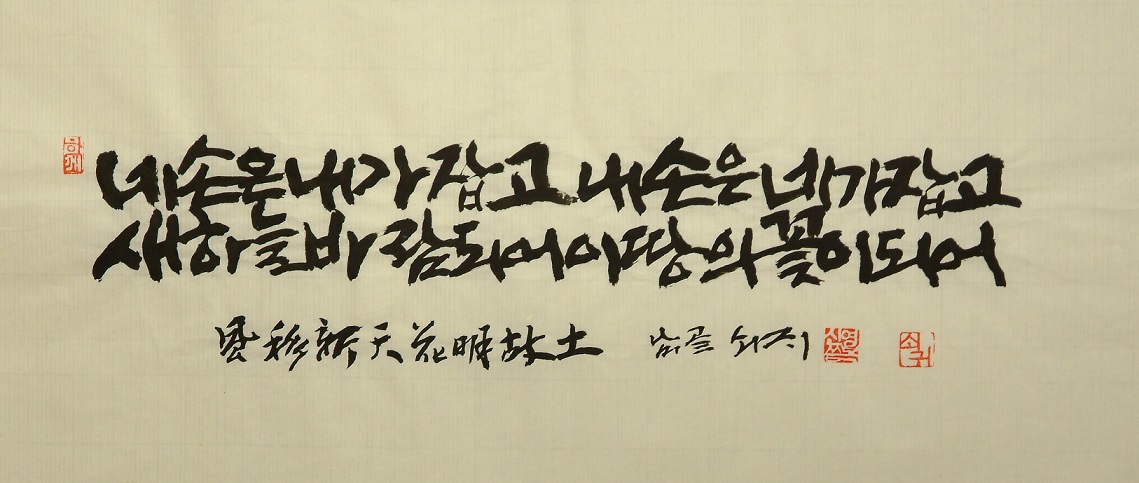 네손은내가잡고 내손은네가잡고
새하늘바람되어이땅의꽃이되어
風移新天花明故土 쇠귀